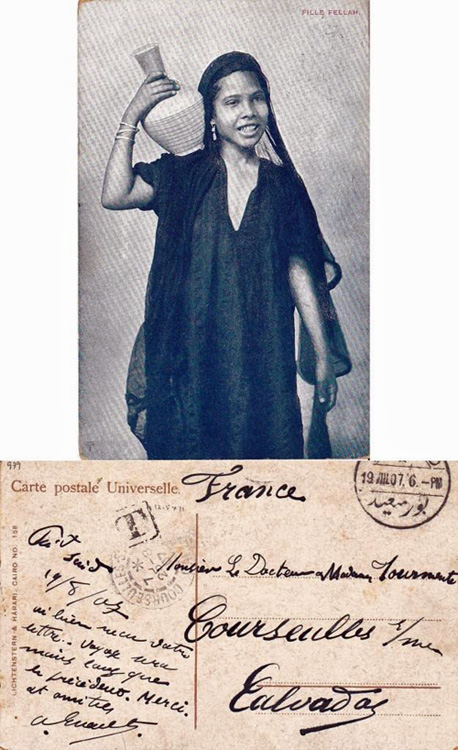 FILLE FELLAH.
979
Carte postale Universelle.
France
19.VIII.07. 6.-PM
بورسعيد
T
COURSEULLES
LICHTENSTERN & HARARI, CAIRO NO. 158
Port
Said
19/8/07
ai bien reçu votre
lettre. Voyage sera
moins long que
le précédent. Merci.
et amitiés
Monsieur Le Docteur & Madame
Courseulles s/mer
Calvados